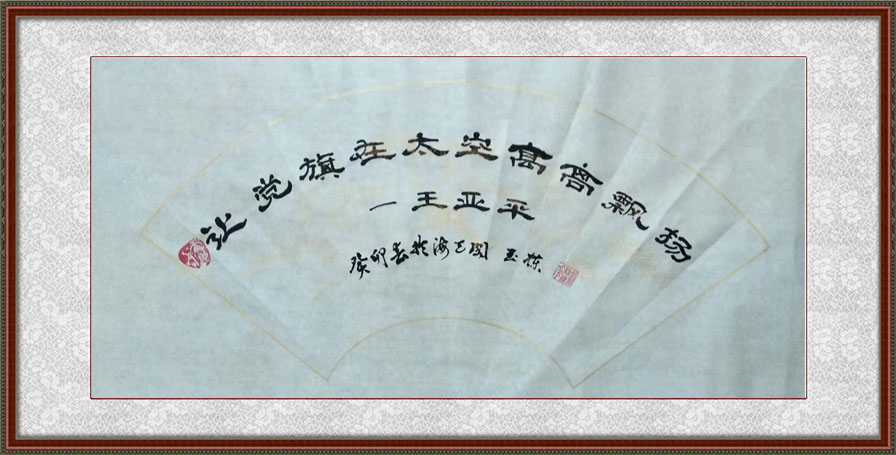 让党旗在太空高高飘扬
一王亚平
癸卯春于海马阁 玉栋